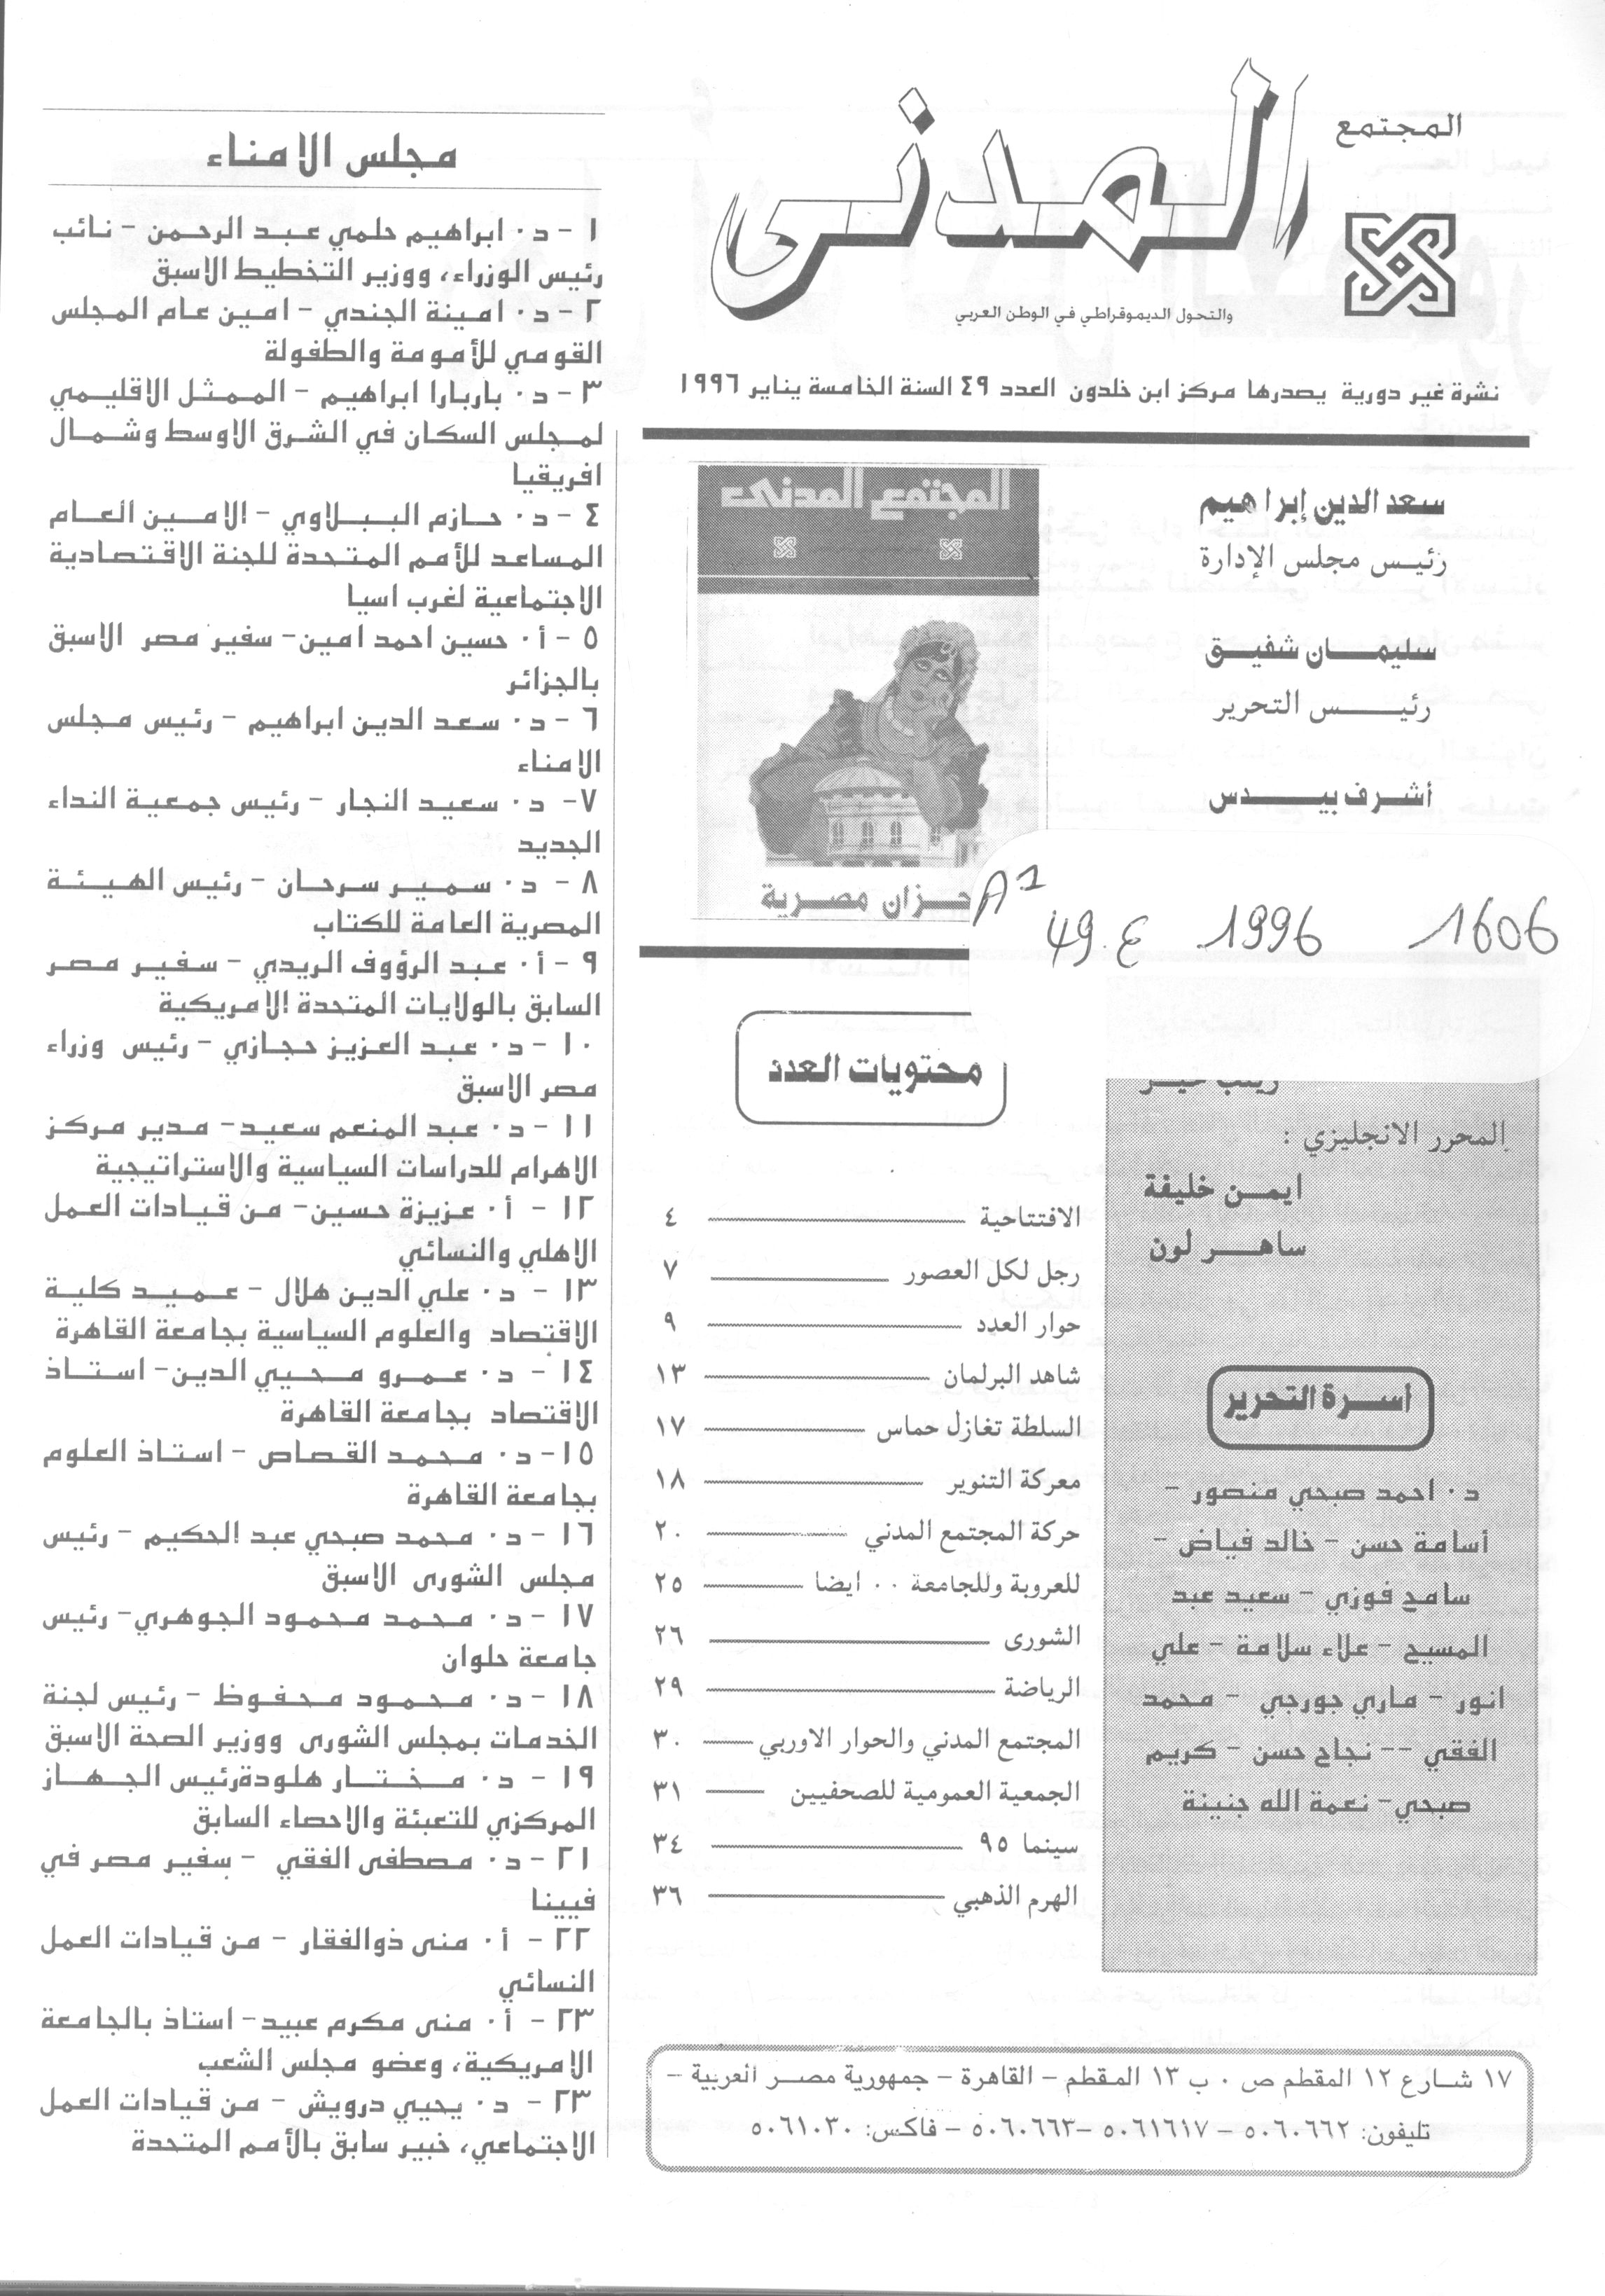 المجتمع
المدنى
والتحول الديموقراطي في الوطن العربي
نشرة غير دورية يصدرها مركز ابن خلدون العدد ٤٩ السنة الخامسة يناير ١٩٩٦
سعد الدين إبراهيم
رئيس مجلس الإدارة
سليمان شفيق
رئيس التحرير
أشرف بيدس
المجتمع المدنى
حزان مصرية
49 ع 1996 1606
المحرر الانجليزي :
ايمن خليفة
ساهر لون
أسرة التحرير
د٠ احمد صبحي منصور -
أسامة حسن - خالد فياض -
سامح فوزي - سعيد عبد
المسيح - علاء سلامة - علي
انور - ماري جورجي - محمد
الفقي -- نجاح حسن - كريم
صبحي- نعمة الله جنينة
محتويات العدد
الافتتاحية ٤
رجل لكل العصور ٧
حوار العدد ٩
شاهد البرلمان ١٣
السلطة تغازل حماس ١٧
معركة التنوير ١٨
حركة المجتمع المدني ٢٠
للعروبة وللجامعة ٠٠ ايضا ٢٥
الشورى ٢٦
الرياضة ٢٩
المجتمع المدني والحوار الاوربي ٣٠
الجمعية العمومية للصحفيين ٣١
سينما ٩٥ ٣٤
الهرم الذهبي ٣٦
١٧ شارع ١٢ المقطم ص ٠ ب ١٣ المقطم - القاهرة - جمهورية مصر العربية -
تليفون: ٥٠٦٠٦٦٢ - ٥٠٦١٦١٧ -٥٠٦٠٦٦٣ - فاكس: ٥٠٦١٠٣٠
مجلس الامناء
١ - د٠ ابراهيم حلمي عبد الرحمن - نائب
رئيس الوزراء، ووزير التخطيط الاسبق
٢ - د٠ امينة الجندي - امين عام المجلس
القومي للأمومة والطفولة
٣ - د٠ باربارا ابراهيم - الممثل الاقليمي
لمجلس السكان في الشرق الاوسط وشمال
افريقيا
٤ - د٠ حازم الببلاوي - الامين العام
المساعد للأمم المتحدة للجنة الاقتصادية
الاجتماعية لغرب اسيا
٥ - أ٠ حسين احمد امين- سفير مصر الاسبق
بالجزائر
٦ - د٠ سعد الدين ابراهيم - رئيس مجلس
الامناء
٧- د٠ سعيد النجار - رئيس جمعية النداء
الجديد
٨ - د٠ سمير سرحان - رئيس الهيئة
المصرية العامة للكتاب
٩ - أ٠ عبد الرؤوف الريدي - سفير مصر
السابق بالولايات المتحدة الامريكية
١٠ - د٠ عبد العزيز حجازي - رئيس وزراء
مصر الاسبق
١١ - د٠ عبد المنعم سعيد- مدير مركز
الاهرام للدراسات السياسية والاستراتيجية
١٢ - أ٠ عزيزة حسين- من قيادات العمل
الاهلي والنسائي
١٣ - د٠ علي الدين هلال - عميد كلية
الاقتصاد والعلوم السياسية بجامعة القاهرة
١٤ - د٠ عمرو محيي الدين- استاذ
الاقتصاد بجامعة القاهرة
١٥- د٠ محمد القصاص - استاذ العلوم
بجامعة القاهرة
١٦ - د٠ محمد صبحي عبد الحكيم - رئيس
مجلس الشورى الاسبق
١٧ - د٠ محمد محمود الجوهري- رئيس
جامعة حلوان
١٨ - د٠ محمود محفوظ - رئيس لجنة
الخدمات بمجلس الشورى ووزير الصحة الاسبق
١٩ - د٠ مختار هلودةرئيس الجهاز
المركزي للتعبئة والاحصاء السابق
٢١ - د٠ مصطفى الفقي - سفير مصر في
فيينا
٢٢ - أ٠ منى ذوالفقار - من قيادات العمل
النسائي
٢٣ - أ٠ منى مكرم عبيد- استاذ بالجامعة
الامريكية، وعضو مجلس الشعب
٢٣ - د٠ يحيي درويش - من قيادات العمل
الاجتماعي، خبير سابق بالأمم المتحدة